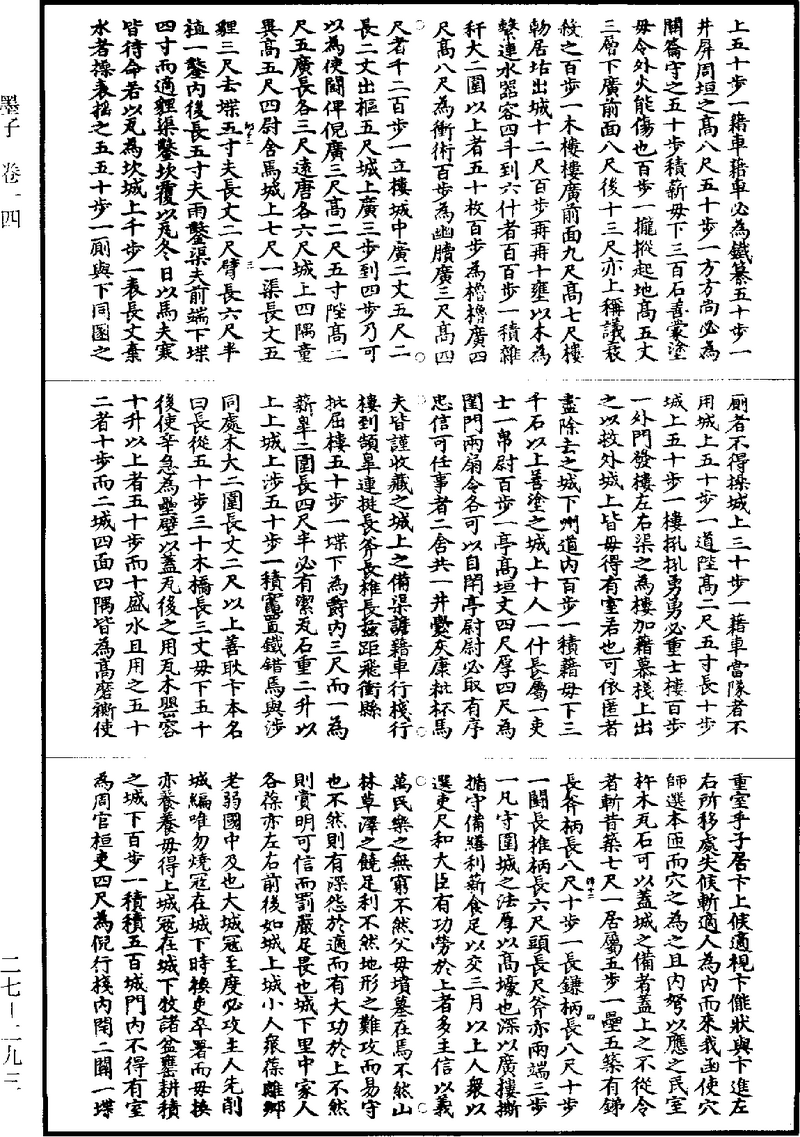 墨子 卷一四
上五十步一藉車藉車必為鐵纂五十步一
井屏周垣之高八尺五十步一方方尚必為
關籥守之五十步積薪毋下三百石善蒙塗
毋令外火能傷也百步一櫳樅起地高五丈
三層下廣前面八尺後十三尺亦上稱議衰
殺之百步一木樓樓廣前面九尺高七尺樓
勿居坫出城十二尺百步再再十壅以木為
繫連水器容四斗到六什者百百步一積雜
秆大二圍以上者五十枚百步為櫓櫓廣四
尺高八尺為衝術百步為幽䐻廣三尺高四
尺者千二百步一立樓城中廣二丈五尺二
長二丈出樞五尺城上廣三步到四步乃可
以為使鬪俾倪廣三尺高二尺五寸陛高二
尺五廣長各三尺遠唐各六尺城上四隅童
異高五尺四尉舍焉城上七尺一渠長丈五
貍三尺去堞五寸夫長丈二尺臂長六尺半
植一鑿內後長五寸夫兩鑿渠夫前端下堞
四寸而適貍渠鑿坎覆以瓦冬日以馬夫寒
皆待命若以瓦為坎城上千步一表長丈棄
水者操表搖之五五十步一廁與下同圂之
廁者不得操城上三十步一藉車當隊者不
用城上五十步一道陛高二尺五寸長十步
城上五十步一樓㧈㧈勇勇必重士樓百步
一外門發樓左右渠之為樓加藉幕棧上出
之以救外城上皆毋得有室若也可依匿者
盡除去之城下州道內百步一積藉毋下三
千石以上善塗之城上十人一什長屬一吏
士一帛尉百步一亭高垣丈四尺厚四尺為
閨門兩扇令各可以自閉亭尉尉必取有序
忠信可任事者二舍共一井爨灰康粃杯馬
夫皆謹收藏之城上之備渠譫藉車行棧行
樓到頡皋連挺長斧長椎長茲距飛衝縣
批屈樓五十步一堞下為爵內三尺而一為
薪皋二圍長四尺半必有潔瓦石重二升以
上上城上涉五十步一積竈置鐵錯焉與涉
同處木大二圍長丈二尺以上善耿卞本名
曰長從五十步三十木橋長三丈毋下五十
後使辛急為壘壁以蓋瓦後之用瓦木罌容
十升以上者五十步而十盛水且用之五十
二者十步而二城四面四隅皆為高磨𧝓使
重室乎子居卞上候適視卞態狀與卞進左
右所移處失候斬適人為內而來我亟使穴
師選本匝而穴之為之且內弩以應之民室
杵木瓦石可以蓋城之備者蓋上之不從令
者斬昔築七尺一居屬五步一壘五築有銻
長斧柄長八尺十步一長鎌柄長八尺十步
一鬪長椎柄長六尺頭長尺斧亦兩端三步
一凡守圍城之法厚以高壕也深以廣樓撕
揗守備繕利薪食足以交三月以上人衆以
選吏尺和大臣有功勞於上者多主信以義
萬民樂之無窮不然父母墳墓在焉不然山
林草澤之饒足利不然地形之難攻而易守
也不然則有深怨於適而有大功於上不然
則賞明可信而罰嚴足畏也城下里中家人
各葆亦左右前後如城上城小人衆葆離鄉
老弱國中及也大城寇至度必攻主人先削
城編唯勿燒寇在城下時換吏卒署而毋換
亦養養毋得上城寇在城下牧諸盆罋耕積
之城下百步一積積五百城門內不得有室
為周官桓吏四尺為倪行棧內閈二關一堞
二七-二九三